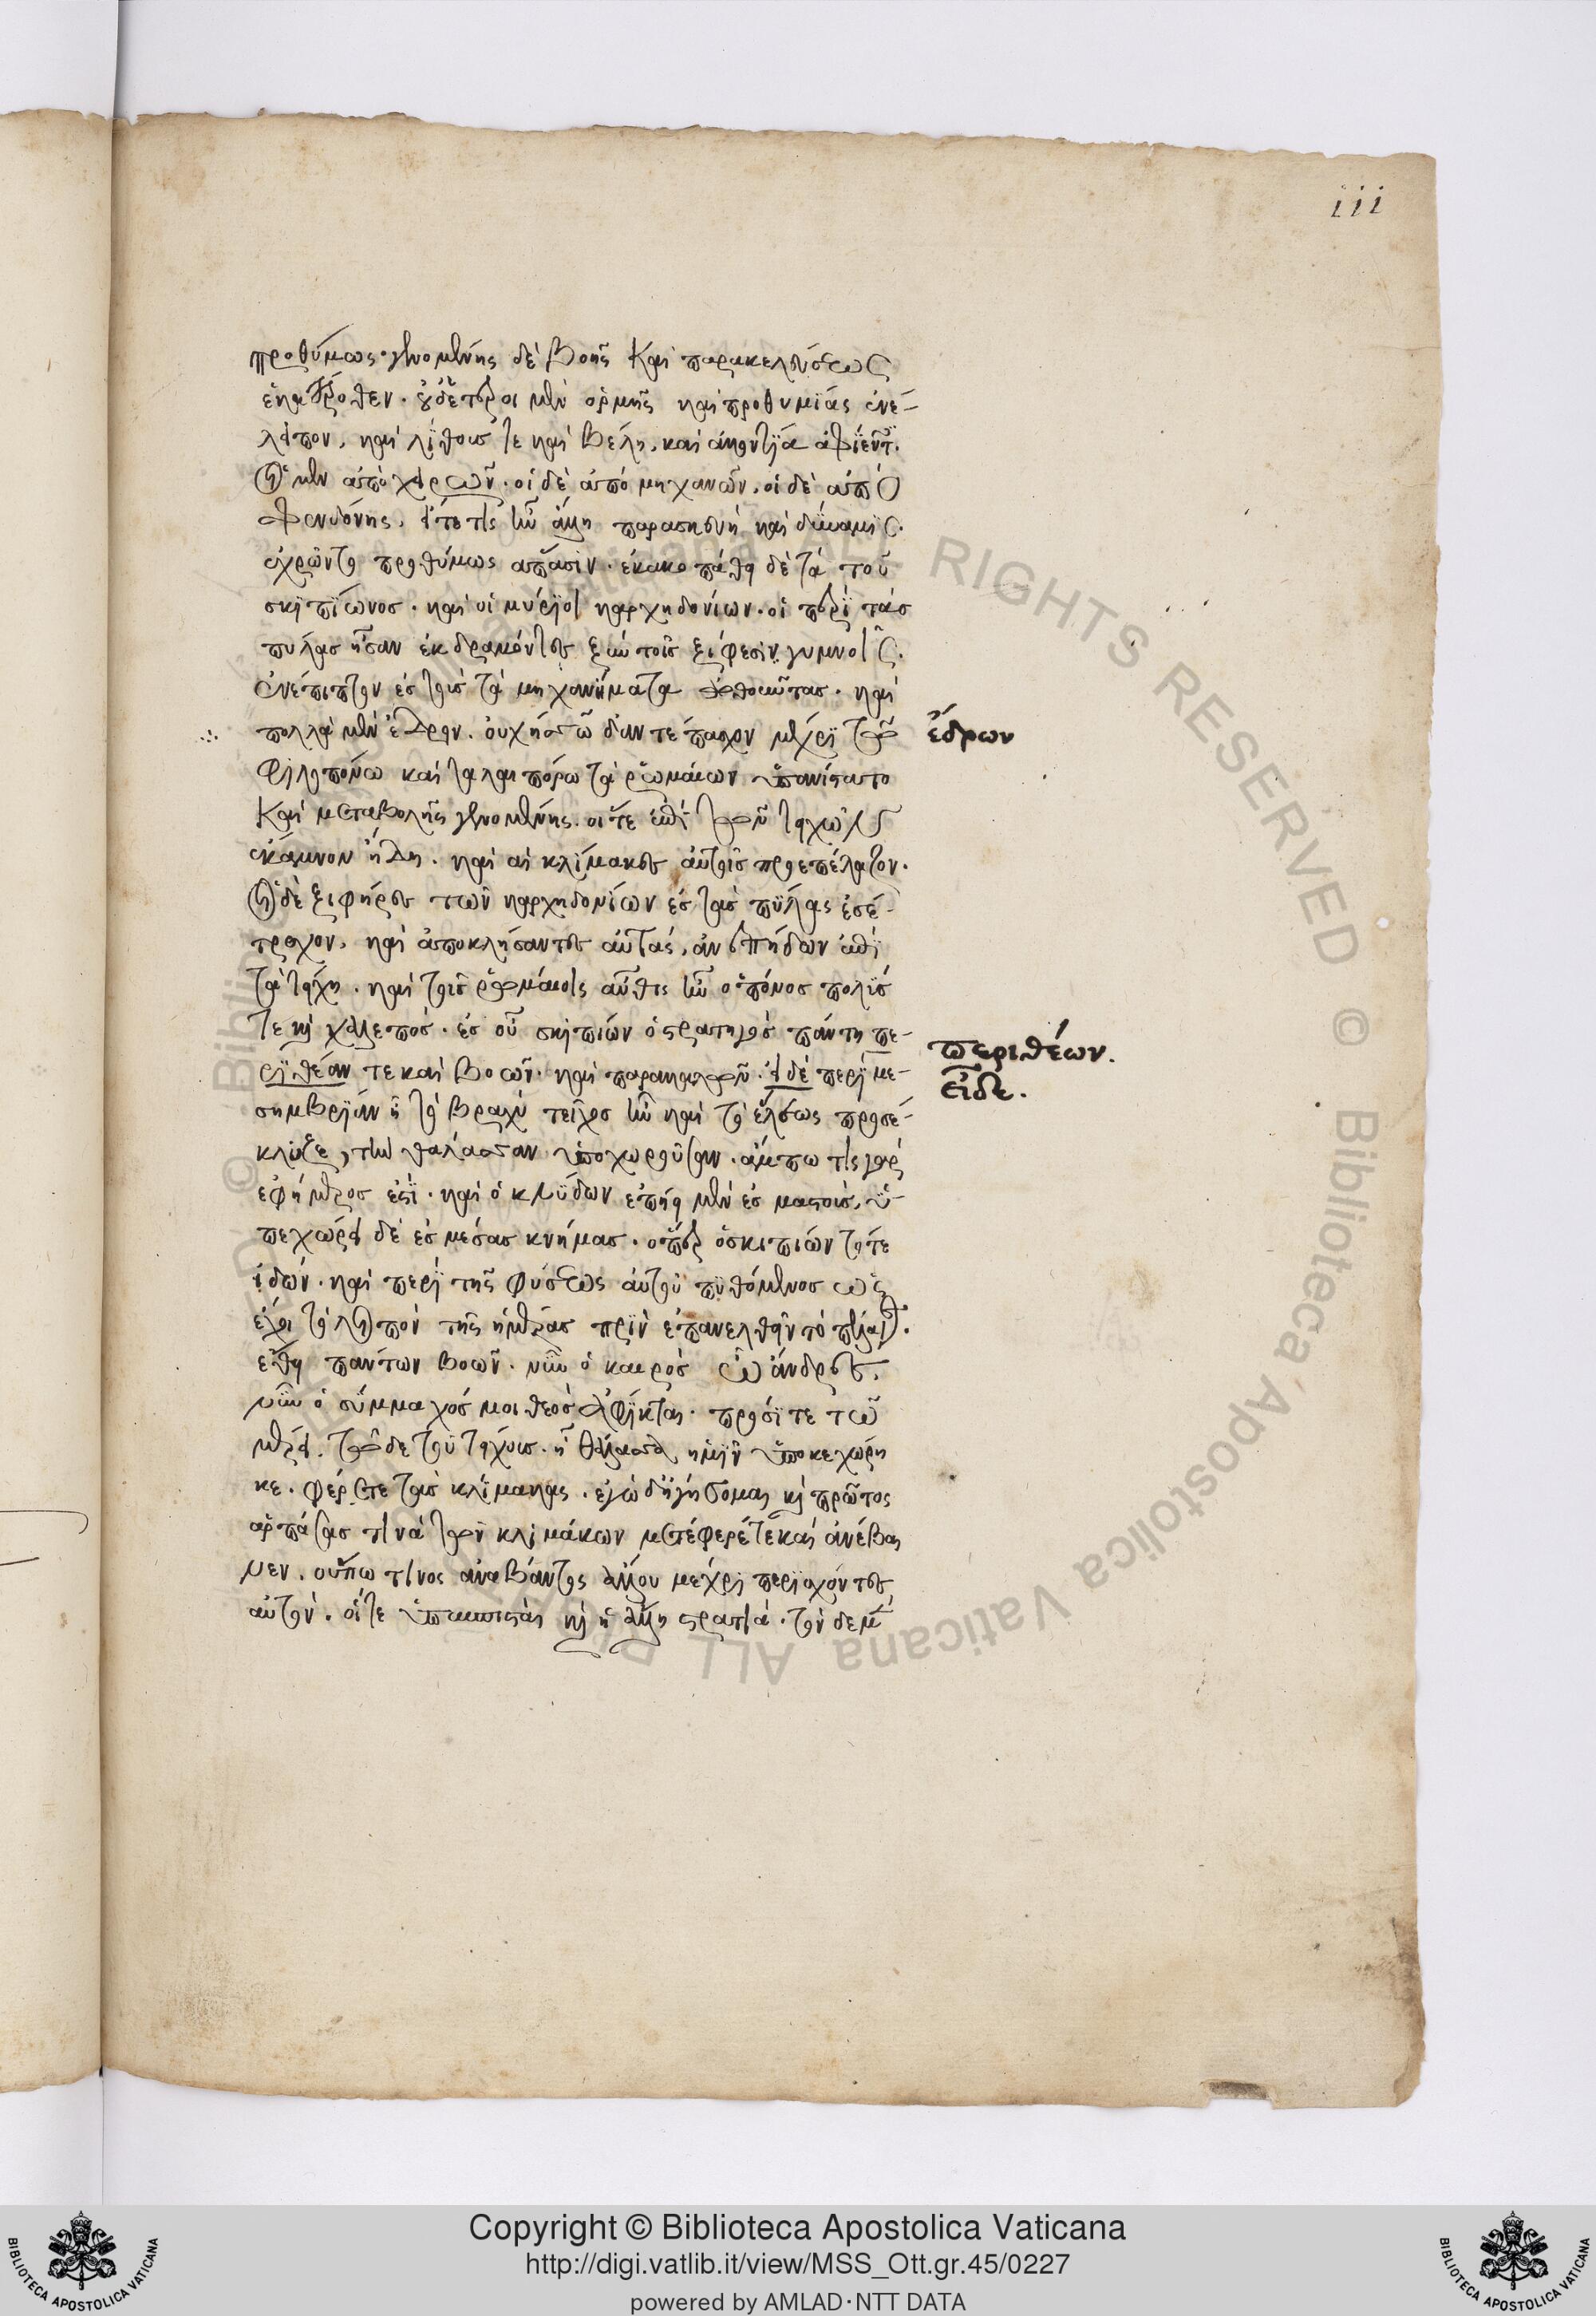 iii
προθύμως· γινομένης δὲ βοῆς καὶ παρακελεύσεως
ἑκατέρωθεν. οὐδέτεροι μὲν ὁρμῆς καὶ προθυμίας ἐνέ-
λειπον, καὶ λίθους τε καὶ βέλη, καὶ ἀκόντια ἀφϊέντ.
οἱ μὲν ἀπὸ χειρῶν. οἱ δὲ ἀπὸ μηχανῶν. οἱ δὲ ἀπὸ
σφενδόνης. εἴτε τις ἦν ἄλλη παρασκευὴ καὶ δύναμϊς.
ἐχρῶντο προθύμως ἅπασιν. ἐκακοπάθει δὲ τὰ τοῦ
σκϊπίωνος. καὶ οἱ μύριοι καρχηδονίων. οἱ περὶ τὰς
πύλας ἦσαν ἐκδραμόντες ξὺν τοῖς ξίφεσιν γυμνοῖς.
ἐνέπιπτον ἐς τοὺς τὰ μηχανήματα ὠθοῦντας. καὶ
πολλὰ μὲν ἔδρων. οὐχ ἥσσω δ' ἀντέπασχον μέχρϊ τῷ
ἔδρων
φιλοπόνω καὶ ταλαιπόρω τὰ ῥωμαίων ὑπανίστατο
καὶ μεταβολῆς γινομένης. οἵ τε ἐπὶ τῶν τειχῶν
ἔκαμνον ἤδη. καὶ αἱ κλίμακες αὐτοῖς προσεπέλαζον.
οἱ δὲ ξιφήρεις τῶν καρχηδονίων ἐς τὰς πύλας ἐσέ-
τρεχον. καὶ ἀποκλήσαντες αὐτάς, ἀνεπήδων ἐπὶ
τὰ τείχη. καὶ τοῖς ῥωμαίοις αὖθις ἦν ὁ πόνος πολύς
τε καὶ χαλεπός. ἐς οὗ σκιπιών ὁ στρατηγὸς πάντη πε-
ρϊθέαν τε καὶ βοῶν. καὶ παρακαλῶν. εἰ δὲ περὶ με-
περιθέων.
εἶδε.
σημβρίαν ᾗ τὸ βραχὺ τεῖχος ἦν καὶ τὸ ἕλος ὡς προσέ-
κλυζε, τὴν θάλασσαν ὑποχωροῦσαν. ἄμπωτις γὰρ
ἐφήμερος ἐστϊ. καὶ ὁ κλύδων ἐπῄει μὲν ἐς μαστοὺς, ὑ-
πεχώρει δὲ ἐς μέσας κνήμας. ὅπερ ὁ σκιπιών τότε
ἰδών. καὶ περὶ τῆς φύσεως αὐτοῦ πυθόμενος ὡς
ἔχοι τὸ λοιπὸν τῆς ἡμέρας πρὶν ἐπανελθεῖν τὸ πέλαγ.
ἔθει πάντων βοῶν. νῦν ὁ καιρὸς ὦ ἄνδρες.
νῦν ὁ σύμμαχός μοι θεὸς ἀφῖκται. πρόσϊτε τῶ
μέρει. τῷδε τοῦ τείχους. ἡ θάλασσα ἡμῖν ὑποκεχώρη
κε. φέρετε τὰς κλίμακας. ἐγὼ δ' ἡγήσομαι καὶ πρῶτος
ἁρπάσας τινὰ τῶν κλιμάκων μετέφερέ τε καὶ ἀνέβαι
νεν. οὔπω τινος ἀναβάντος ἄλλου μέχρι περισχόντες
αὐτὸν. οἵ τε ὑπασπισταὶ καὶ ἡ ἄλλη στρατιά. τόνδε μὲν